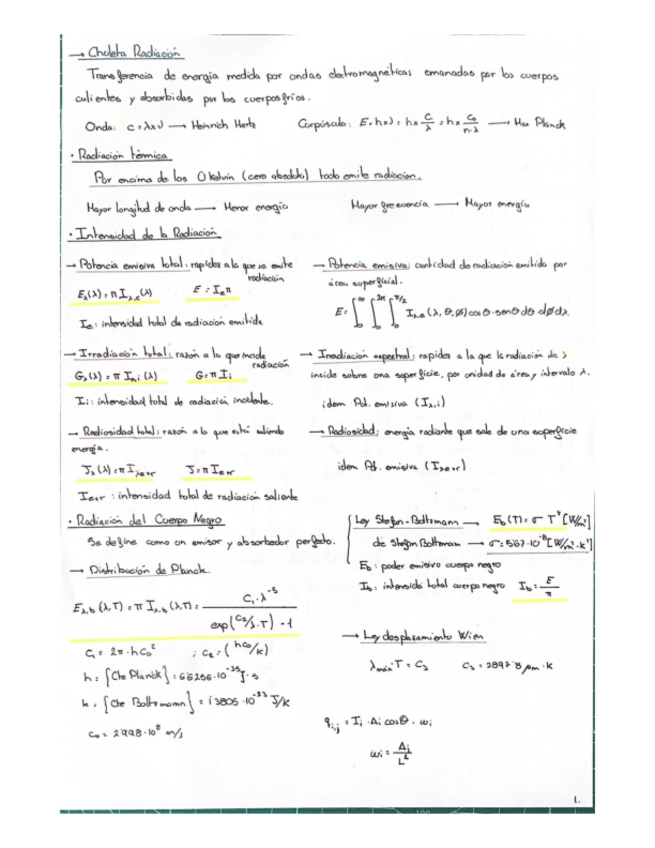 → Chuleta Radiación
Transferencia de energia medida por ondas electromagnéticas emanadas por los cuerpos
calientes y absorbidas por los cuerpos fríos.
Onda: c = λ×ν → Heinrich Hertz
Corpúsculo: E = h×ν = h× C/λ = h× C₀/n·λ → Max Planck
· Radiación térmica
Por encima de los 0 Kelvin (cero absoluto) todo emite radiacion.
Mayor longitud de onda → Menor energia
Mayor frecuencia → Mayor energia
· Intensidad de la Radiación
→ Potencia emisiva total: rapidez a la que se emite
radiación
E_λ(λ) = π I_λ,e(λ)
E = I_e π
I_e: intensidad total de radiación emitida
→ Potencia emisiva: cantidad de radiacion emitido por
área superficial.
E = ∫₀^∞ ∫₀^2π ∫₀^π/2 I_λ,e (λ, θ, Ø) cos θ · sen θ dθ dØ dλ
→ Irradiación total: razón a la que incide
radiación
G_λ(λ) = π I_λ,i (λ)
G = π I_i
I_i: intensidad total de radiación incidente.
→ Irradiacion espectral: rapidez a la que la radiación de λ
incide sobre una superficie, por unidad de área y intervalo λ.
idem Pot. emisiva (I_λ,i)
→ Radiosidad total: razón a la que está saliendo
energía.
J_λ(λ) = π I_λ,e+r
J = π I_e+r
I_e+r : intensidad total de radiación saliente
→ Radiosidad: energía radiante que sale de una superficie
idem Pot. emisiva (I_λ,e+r)
· Radiación del Cuerpo Negro
Se define como un emisor y absorbedor perfecto.
→ Distribución de Planck
E_λ,b (λ,T) = π I_λ,b (λ,T) = C₁·λ⁻⁵ / exp(C₂/λ·T) - 1
C₁ = 2π·hC₀² ; C₂ = (hC₀/k)
h = {Cte Planck} = 6'6256·10⁻³⁵ J·s
k = {Cte Boltzmann} = 1'3805·10⁻²³ J/K
C₀ = 2'998·10⁸ m/s
Ley Stefan-Boltzmann → E_b(T) = σ T⁴ [W/m²]
de Stefan Boltzman → σ = 5'67·10⁻⁸ [W/m²·K⁴]
E_b: poder emisivo cuerpo negro
I_b: intensida total cuerpo negro I_b = E/π
→ Ley desplazamiento Wien
λmáx·T = C₃ C₃ = 2897'8 μm·K
q_i,j = I_i · A_i cos θ · ω_i
ω_i = A_j/L²
1.